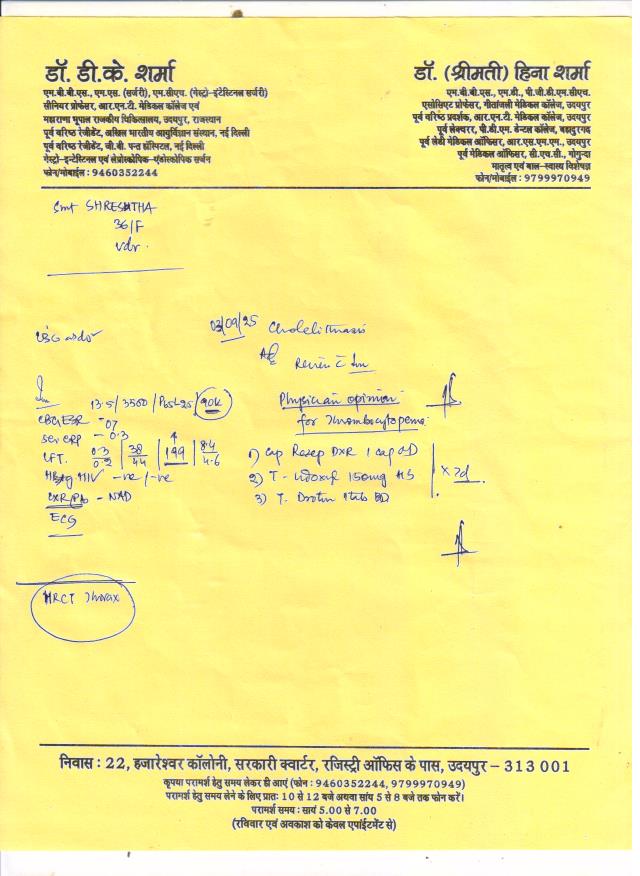 डॉ. डी.के. शर्मा
एम.बी.बी.एस., एम.एस. (सर्जरी), एम.सीएच. (गेस्ट्रो-इंटेस्टिनल सर्जरी)
सीनियर प्रोफेसर, आर.एन.टी. मेडिकल कॉलेज एवं
महाराणा भूपाल राजकीय चिकित्सालय, उदयपुर, राजस्थान
पूर्व वरिष्ठ रेजीडेंट, अखिल भारतीय आयुर्विज्ञान संस्थान, नई दिल्ली
पूर्व वरिष्ठ रेजीडेंट, जी.बी. पन्त हॉस्पिटल, नई दिल्ली
गेस्ट्रो-इन्टेस्टिनल एवं लेप्रोस्कोपिक-एंडोस्कोपिक सर्जन
फोन/मोबाईल : 9460352244
डॉ. (श्रीमती) हिना शर्मा
एम.बी.बी.एस., एम.डी., पी.जी.डी.एम.सीएच.
एसोसिएट प्रोफेसर, गीतांजली मेडिकल कॉलेज, उदयपुर
पूर्व वरिष्ठ प्रदर्शक, आर.एन.टी. मेडिकल कॉलेज, उदयपुर
पूर्व लेक्चरर, पी.डी.एम. डेन्टल कॉलेज, बहादुरगढ
पूर्व लेडी मेडिकल ऑफिसर, आर.एस.एम.एम., उदयपुर
पूर्व मेडिकल ऑफिसर, सी.एच.सी., गोगुन्दा
मातृत्व एवं बाल-स्वास्थ्य विशेषज्ञ
फोन/मोबाईल : 9799970949
Smt SHRESHTHA
36/F
Udr.
03/09/25 Cholelithiasis
USG
Adv
Review c Inv
Inv
13.5/3560/ 90k
Physician opinion
for Thrombocytopenia
ESR - 07
CRP - 0.3
LFT. 0.3/0.2 | 38/44 | 199 | 8.4/4.6
HBsAg HIV -ve/-ve
CXR/PA - NAD
ECG
1) Cap Rasep DXR 1 cap OD
2) T- 150mg HS
3) T. Drotin 1tab BD
x 7d
HRCT Thorax
निवास : 22, हजारेश्वर कॉलोनी, सरकारी क्वार्टर, रजिस्ट्री ऑफिस के पास, उदयपुर – 313 001
कृपया परामर्श हेतु समय लेकर ही आएं (फोन : 9460352244, 9799970949)
परामर्श हेतु समय लेने के लिए प्रातः 10 से 12 बजे अथवा सांय 5 से 8 बजे तक फोन करें।
परामर्श समय : सायं 5.00 से 7.00
(रविवार एवं अवकाश को केवल एपाईंटमेंट से)